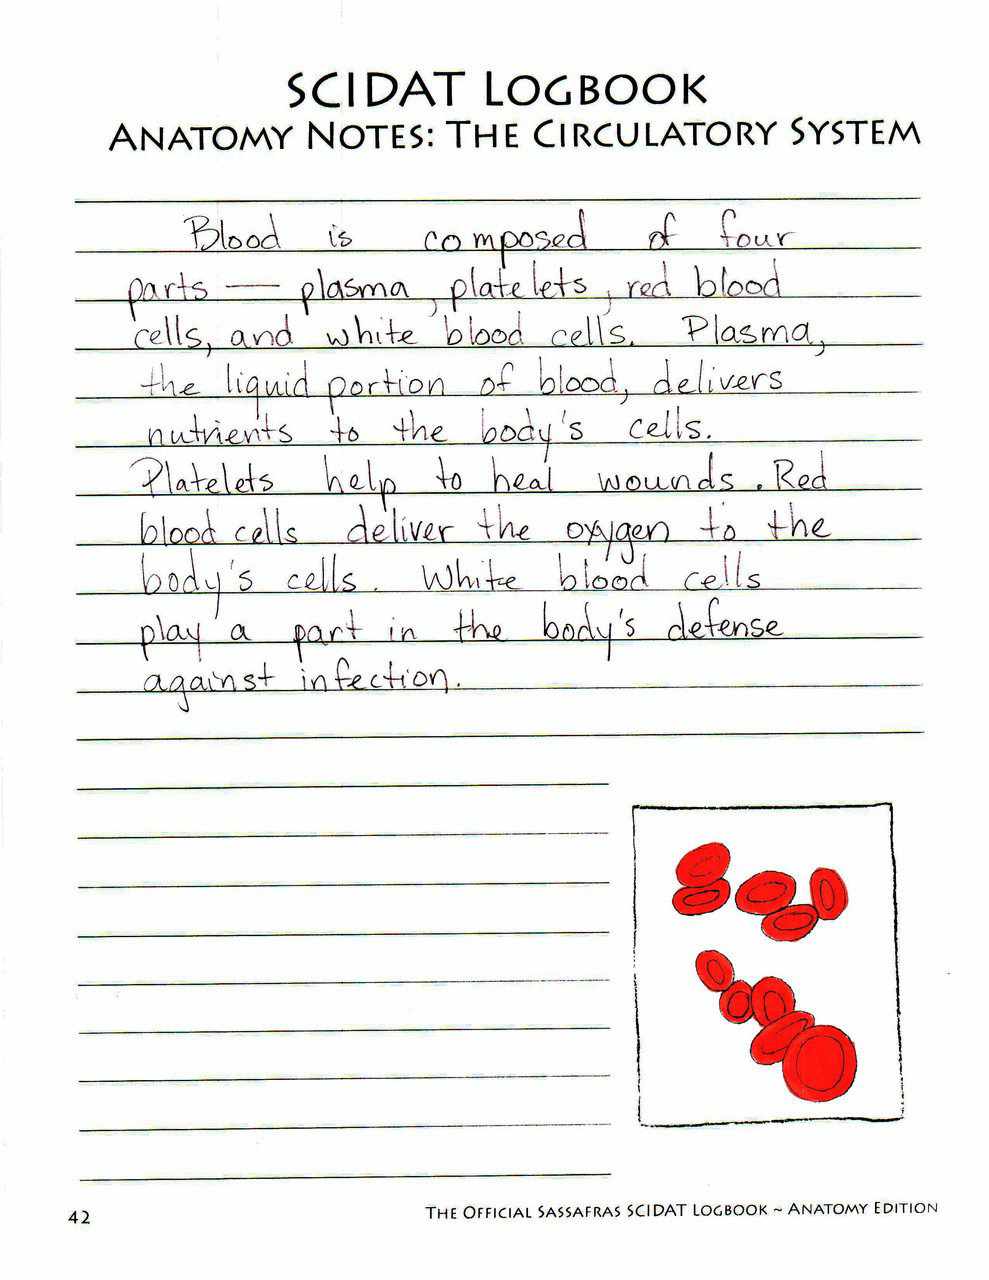 SCIDAT LOGBOOK
ANATOMY NOTES: THE CIRCULATORY SYSTEM
Blood is composed of four
parts — plasma, platelets, red blood
cells, and white blood cells. Plasma,
the liquid portion of blood, delivers
nutrients to the body's cells.
Platelets help to heal wounds. Red
blood cells deliver the oxygen to the
body's cells. White blood cells
play a part in the body's defense
against infection.
42
THE OFFICIAL SASSAFRAS SCIDAT LOGBOOK ~ ANATOMY EDITION